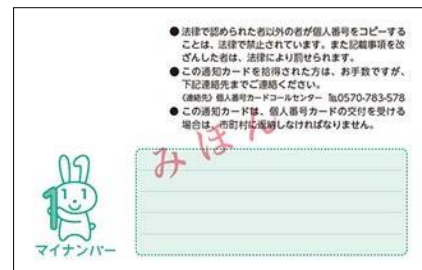 ● 法律で認められた者以外の者が個人番号をコピーする
ことは、法律で禁止されています。また記載事項を改
ざんした者は、法律により罰せられます。
● この通知カードを拾得された方は、お手数ですが、
下記連絡先までご連絡ください。
(連絡先) 個人番号カードコールセンター ℡0570-783-578
● この通知カードは、個人番号カードの交付を受ける
場合は、市町村に返納しなければなりません。
みほん
1
マイナンバー